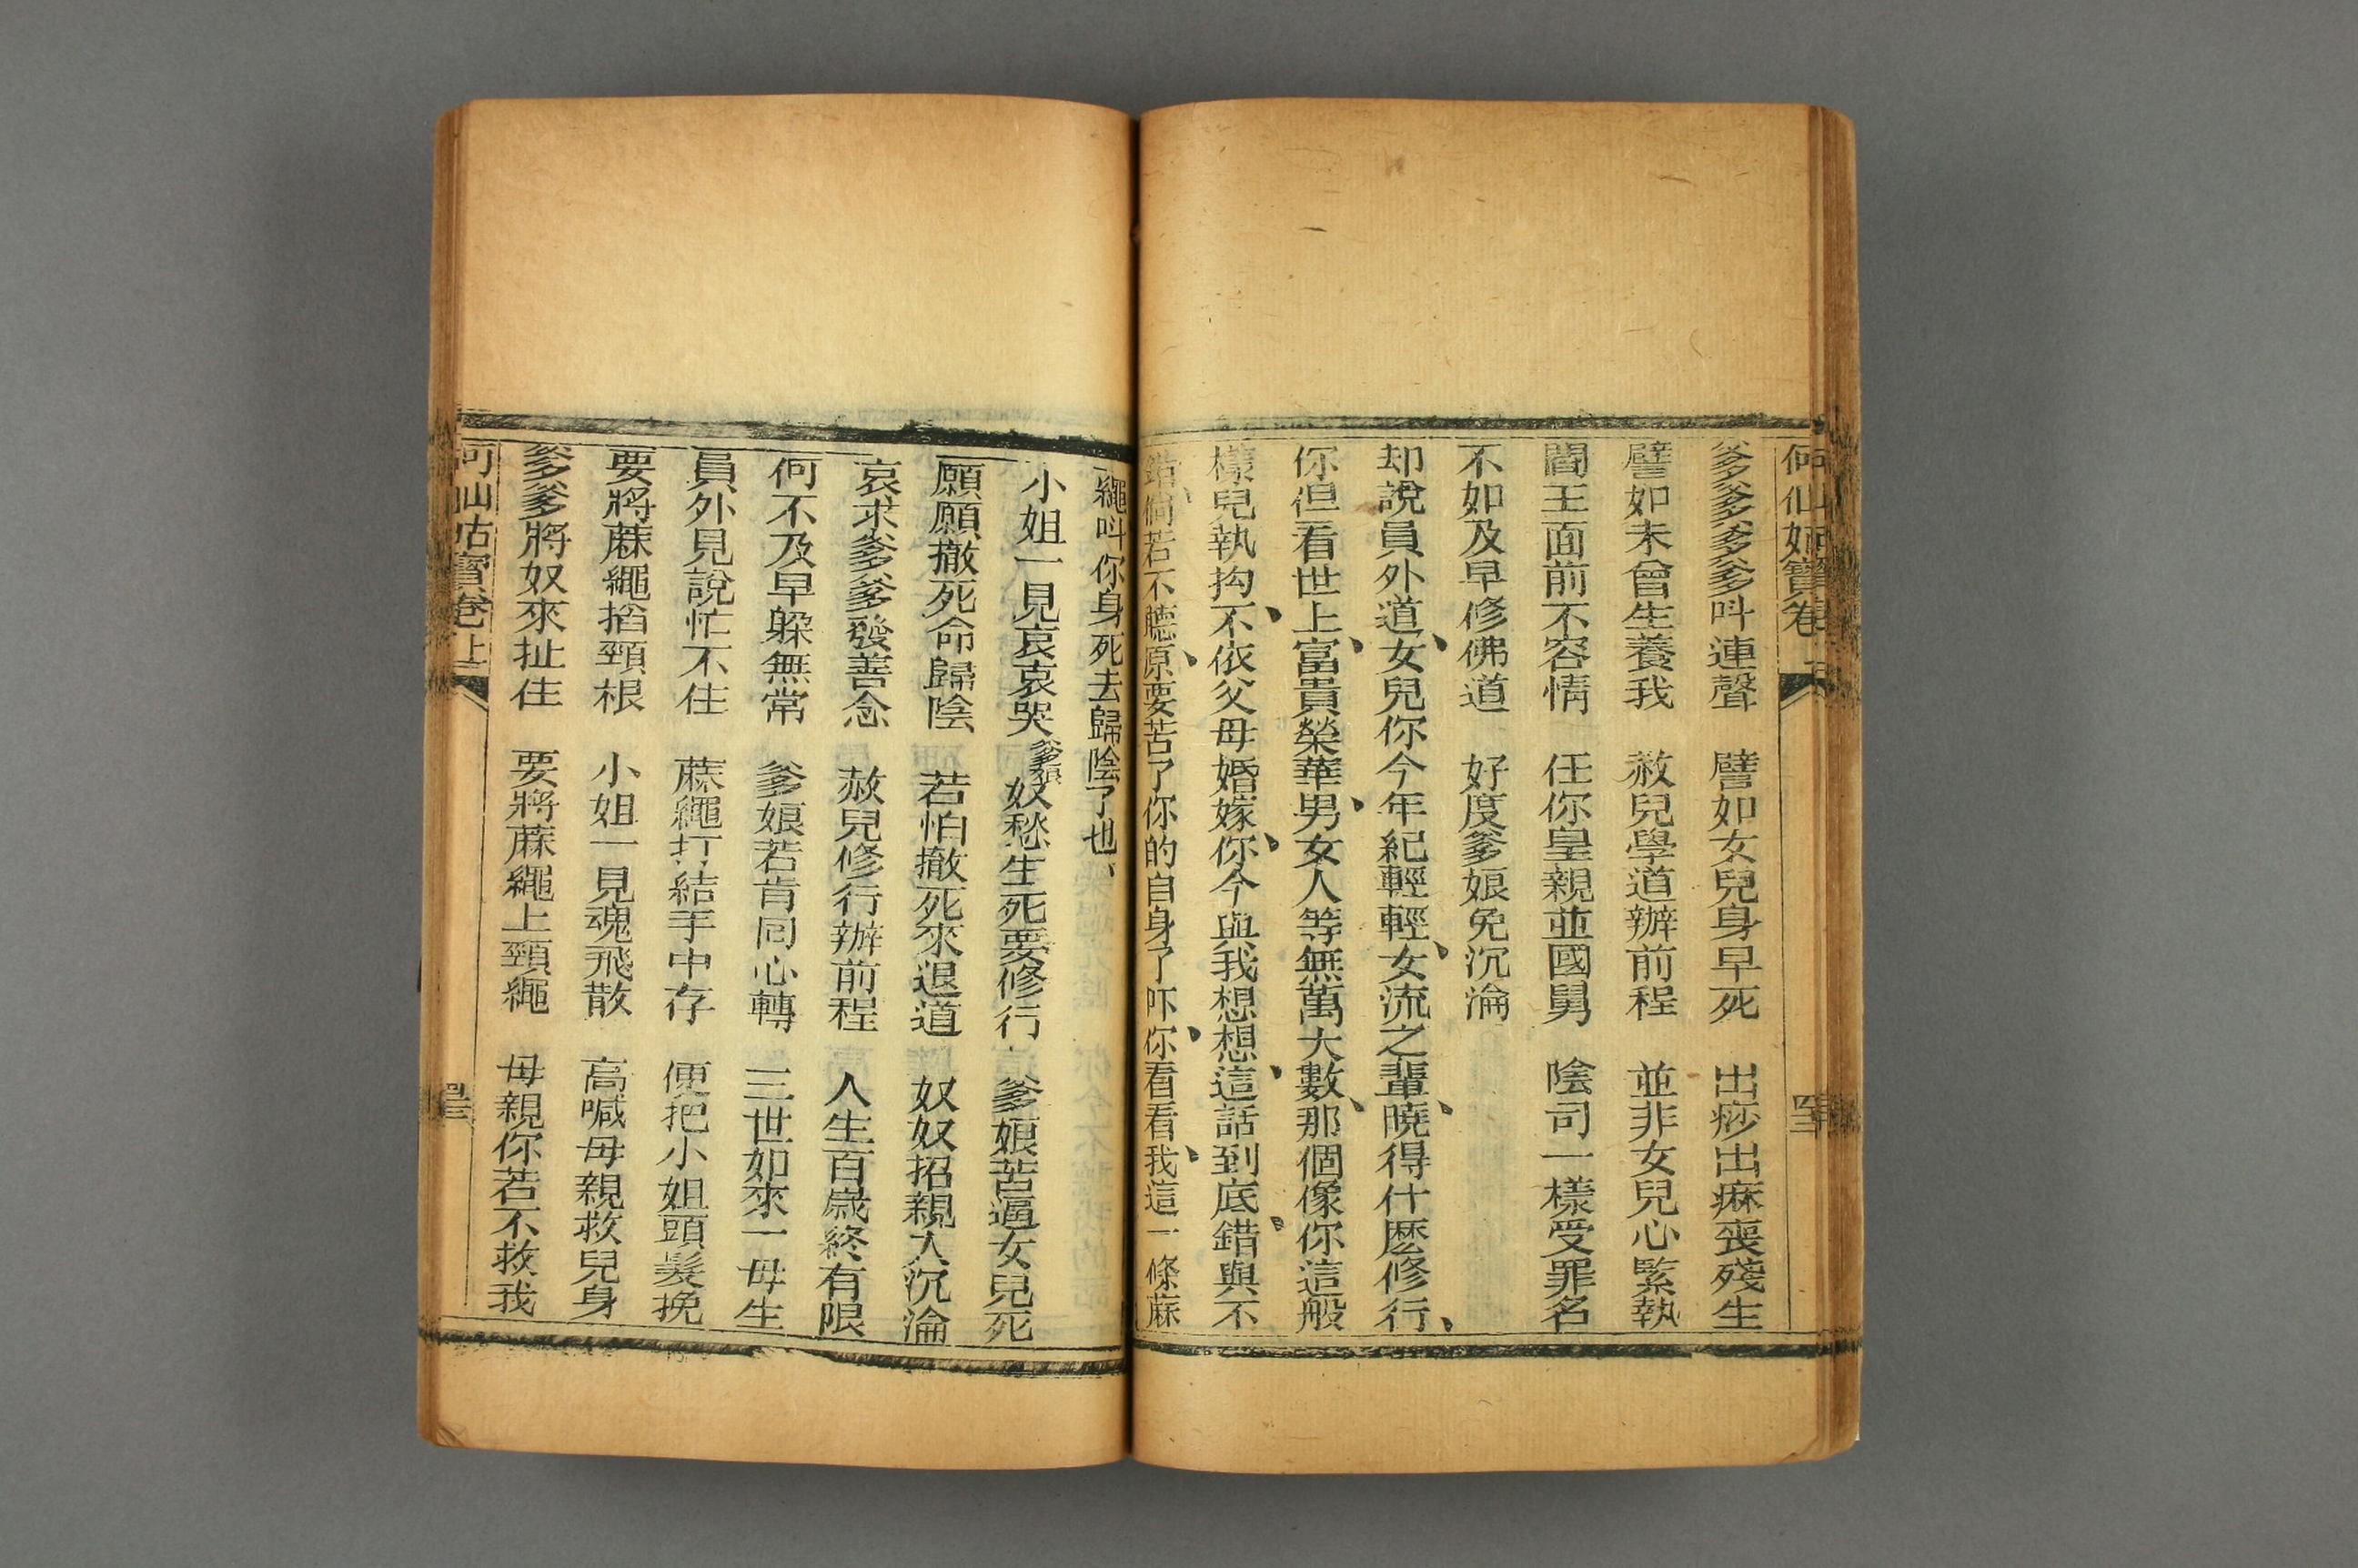 何仙姑寶卷
爹爹爹爹叫連聲 譬如女兒身早死 出痧出痳喪殘生
譬如未曾生養我 赦兒學道辦前程 並非女兒心緊執
閻王面前不容情 任你皇親並國舅 陰司一樣受罪名
不如及早修佛道 好度爹娘免沉淪
却說員外道、女兒你今年紀輕輕、女流之輩、曉得什麽修行、
你但看世上、富貴榮華、男女人等無萬大數、那個像你這般
樣兒執拘、不依父母婚嫁、你今與我想想、這話到底錯與不
錯、倘若不聽、原要苦了你的自身了吓、你看看、我這一條蔴
繩呌你身死去歸陰了也、
小姐一見哀哀哭 爹娘奴愁生死要修行 爹娘苦逼女兒死
願願撤死命歸陰 若怕撤死來退道 奴奴招親入沉淪
哀求爹爹發善念 赦兒修行辦前程 人生百歲終有限
何不及早躲無常 爹娘若肯同心轉 三世如來一母生
員外見說忙不住 蔴繩打結手中存 便把小姐頭髮挽
要將蔴繩揩頸根 小姐一見魂飛散 高喊母親救兒身
爹爹將奴來扯住 要將蔴繩上頸繩 母親你若不救我
何仙姑寶卷上